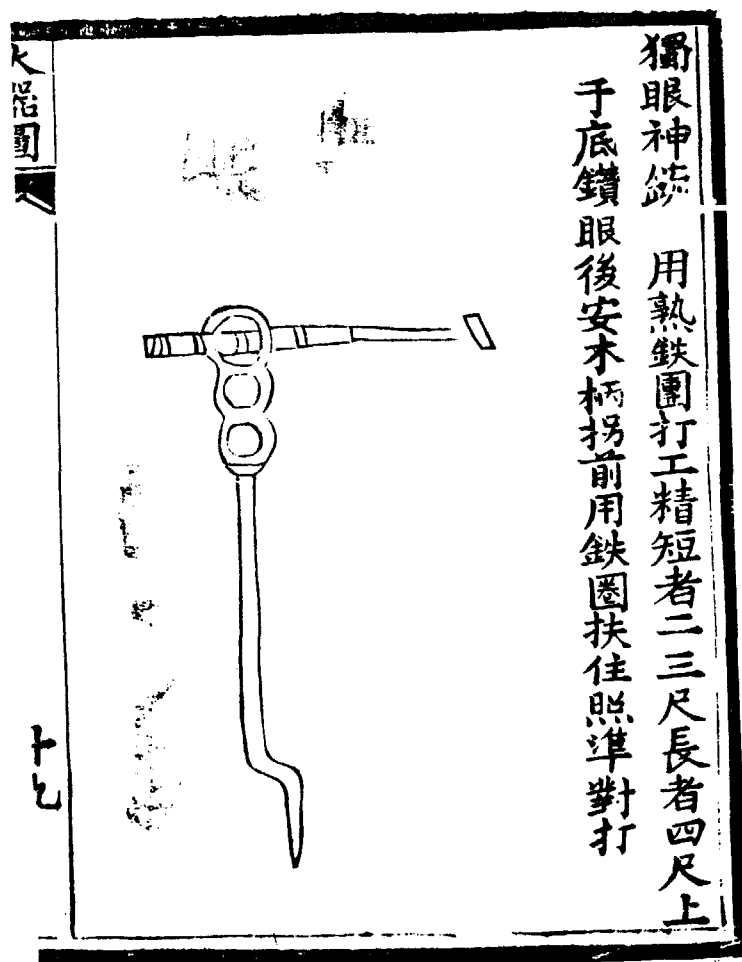 獨眼神銃 用熟鉄團打工精短者二三尺長者四尺上
于底鑽眼後安木柄拐前用鉄圈扶住照準對打
火器圖
十七